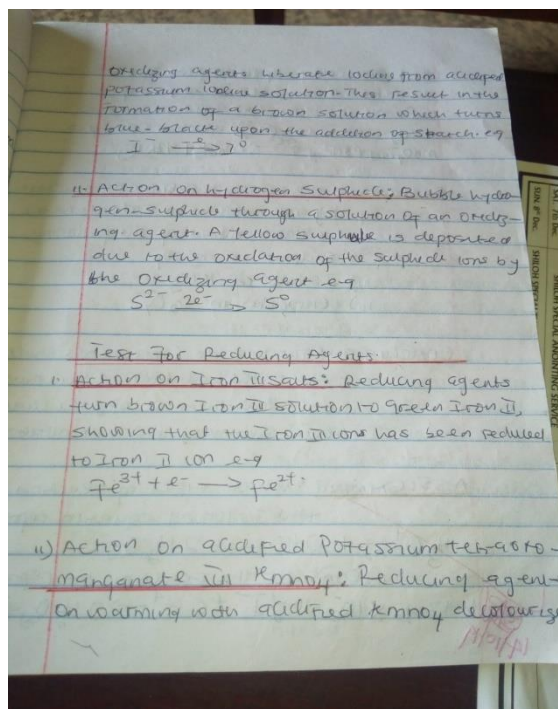 Oxidizing agents liberate iodine from acidified
potassium iodine solution. This result in the
formation of a brown solution which turns
blue-black upon the addition of starch. eg
I⁻ -e> I⁰
ii. Action on hydrogen Sulphide; Bubble hydro-
gen-sulphide through a solution of an oxidiz-
ing agent. A Yellow is deposited
due to the oxidation of the sulphide ions by
the oxidizing agent e-g
S²⁻ 2e⁻> S⁰
Test For Reducing Agents.
i. Action on Iron III salts: Reducing agents
turn brown Iron III solution to green Iron II,
showing that the Iron ions has been reduced
to Iron II ion e-g
Fe³⁺ + e⁻ → Fe²⁺.
ii) Action on acidified Potassium
manganate KmnO₄: Reducing agent
on warming with acidified KmnO₄ decolouriz
SUN. 8th Dec.
SHILOH SPECIAL ANOINTING SERVICE